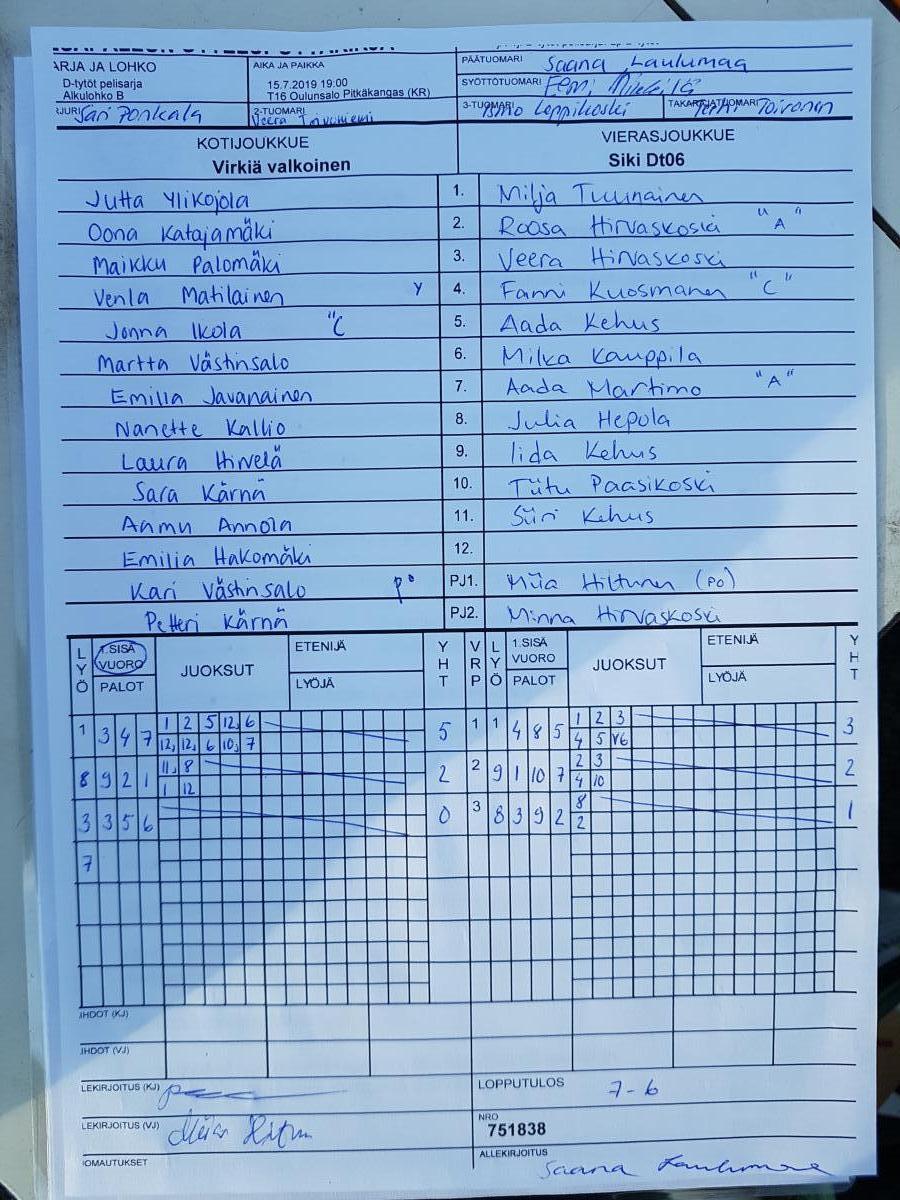 ARJA JA LOHKO
D-tytöt pelisarja
Alkulohko B
AIKA JA PAIKKA
15.7.2019 19:00
T16 Oulunsalo Pitkäkangas (KR)
PÄÄTUOMARI Saana Laulumaa
SYÖTTÖTUOMARI
JURI Sari Jonkala
2-TUOMARI Veera Toivoniemi
3-TUOMARI Ismo Leppikoski
TAKARAJATUOMARI Toivonen
KOTIJOUKKUE
Virkiä valkoinen
VIERASJOUKKUE
Siki Dt06
Jutta Ylikojola 1. Milja Tuunainen
Oona Katajamäki 2. Roosa Hirvaskoski "A"
Maikku Palomäki 3. Veera Hirvaskoski
Venla Matilainen Y 4. Fanni Kuosmanen "C"
Jonna Ikola "C 5. Aada Kehus
Martta Västinsalo 6. Milka Kauppila
Emilia Javanainen 7. Aada Martimo "A"
Nanette Kallio 8. Julia Hepola
Laura Hirvelä 9. Iida Kehus
Sara Kärnä 10. Tiitu Paasikoski
Aamu Annola 11. Siiri Kehus
Emilia Hakomäki 12.
Kari Västinsalo po PJ1. Miia Hiltunen (PO)
Petteri Kärnä PJ2. Minna Hirvaskoski
LYÖ 1.SISÄ VUORO PALOT JUOKSUT ETENIJÄ LYÖJÄ YHT VRP LYÖ 1.SISÄ VUORO PALOT JUOKSUT ETENIJÄ LYÖJÄ YHT
1 3 4 7 1 2 5 12 6 5 1 1 4 8 5 1 2 3 3
12 12 6 10 7 4 5 V6
8 9 2 1 11 8 2 2 9 1 10 7 2 3 2
1 12 4 10
3 3 5 6 0 3 8 3 9 2 8 1
2
7
IHDOT (KJ)
IHDOT (VJ)
LEKIRJOITUS (KJ)
LOPPUTULOS 7-6
LEKIRJOITUS (VJ)
NRO
751838
IOMAUTUKSET
ALLEKIRJOITUS Saana Laulumaa